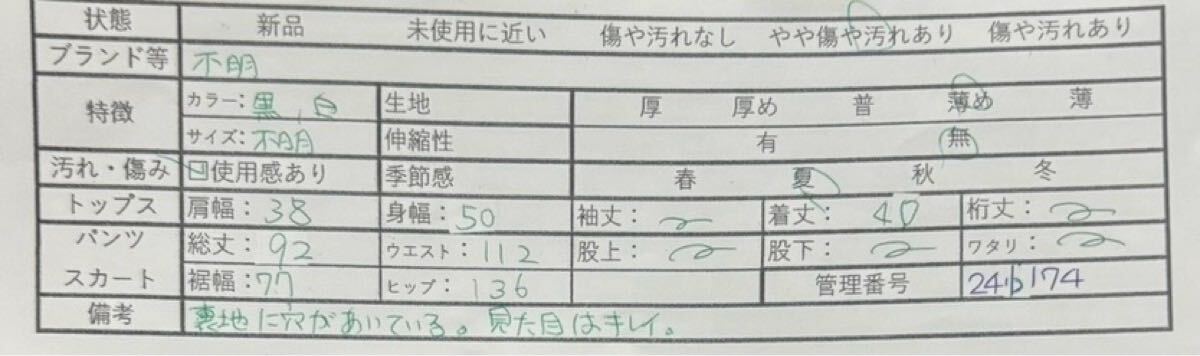 状態 新品 未使用に近い 傷や汚れなし やや傷や汚れあり 傷や汚れあり
ブランド等 不明
特徴 カラー：黒，白 生地 厚 厚め 普 薄め 薄
サイズ：不明 伸縮性 有 無
汚れ・傷み 使用感あり 季節感 春 夏 秋 冬
トップス 肩幅：38 身幅：50 袖丈： 着丈：40 裄丈：
パンツ 総丈：92 ウエスト：112 股上： 股下： ワタリ：
スカート 裾幅：77 ヒップ：136 管理番号
備考 裏地に穴があいている。見た目はキレイ。